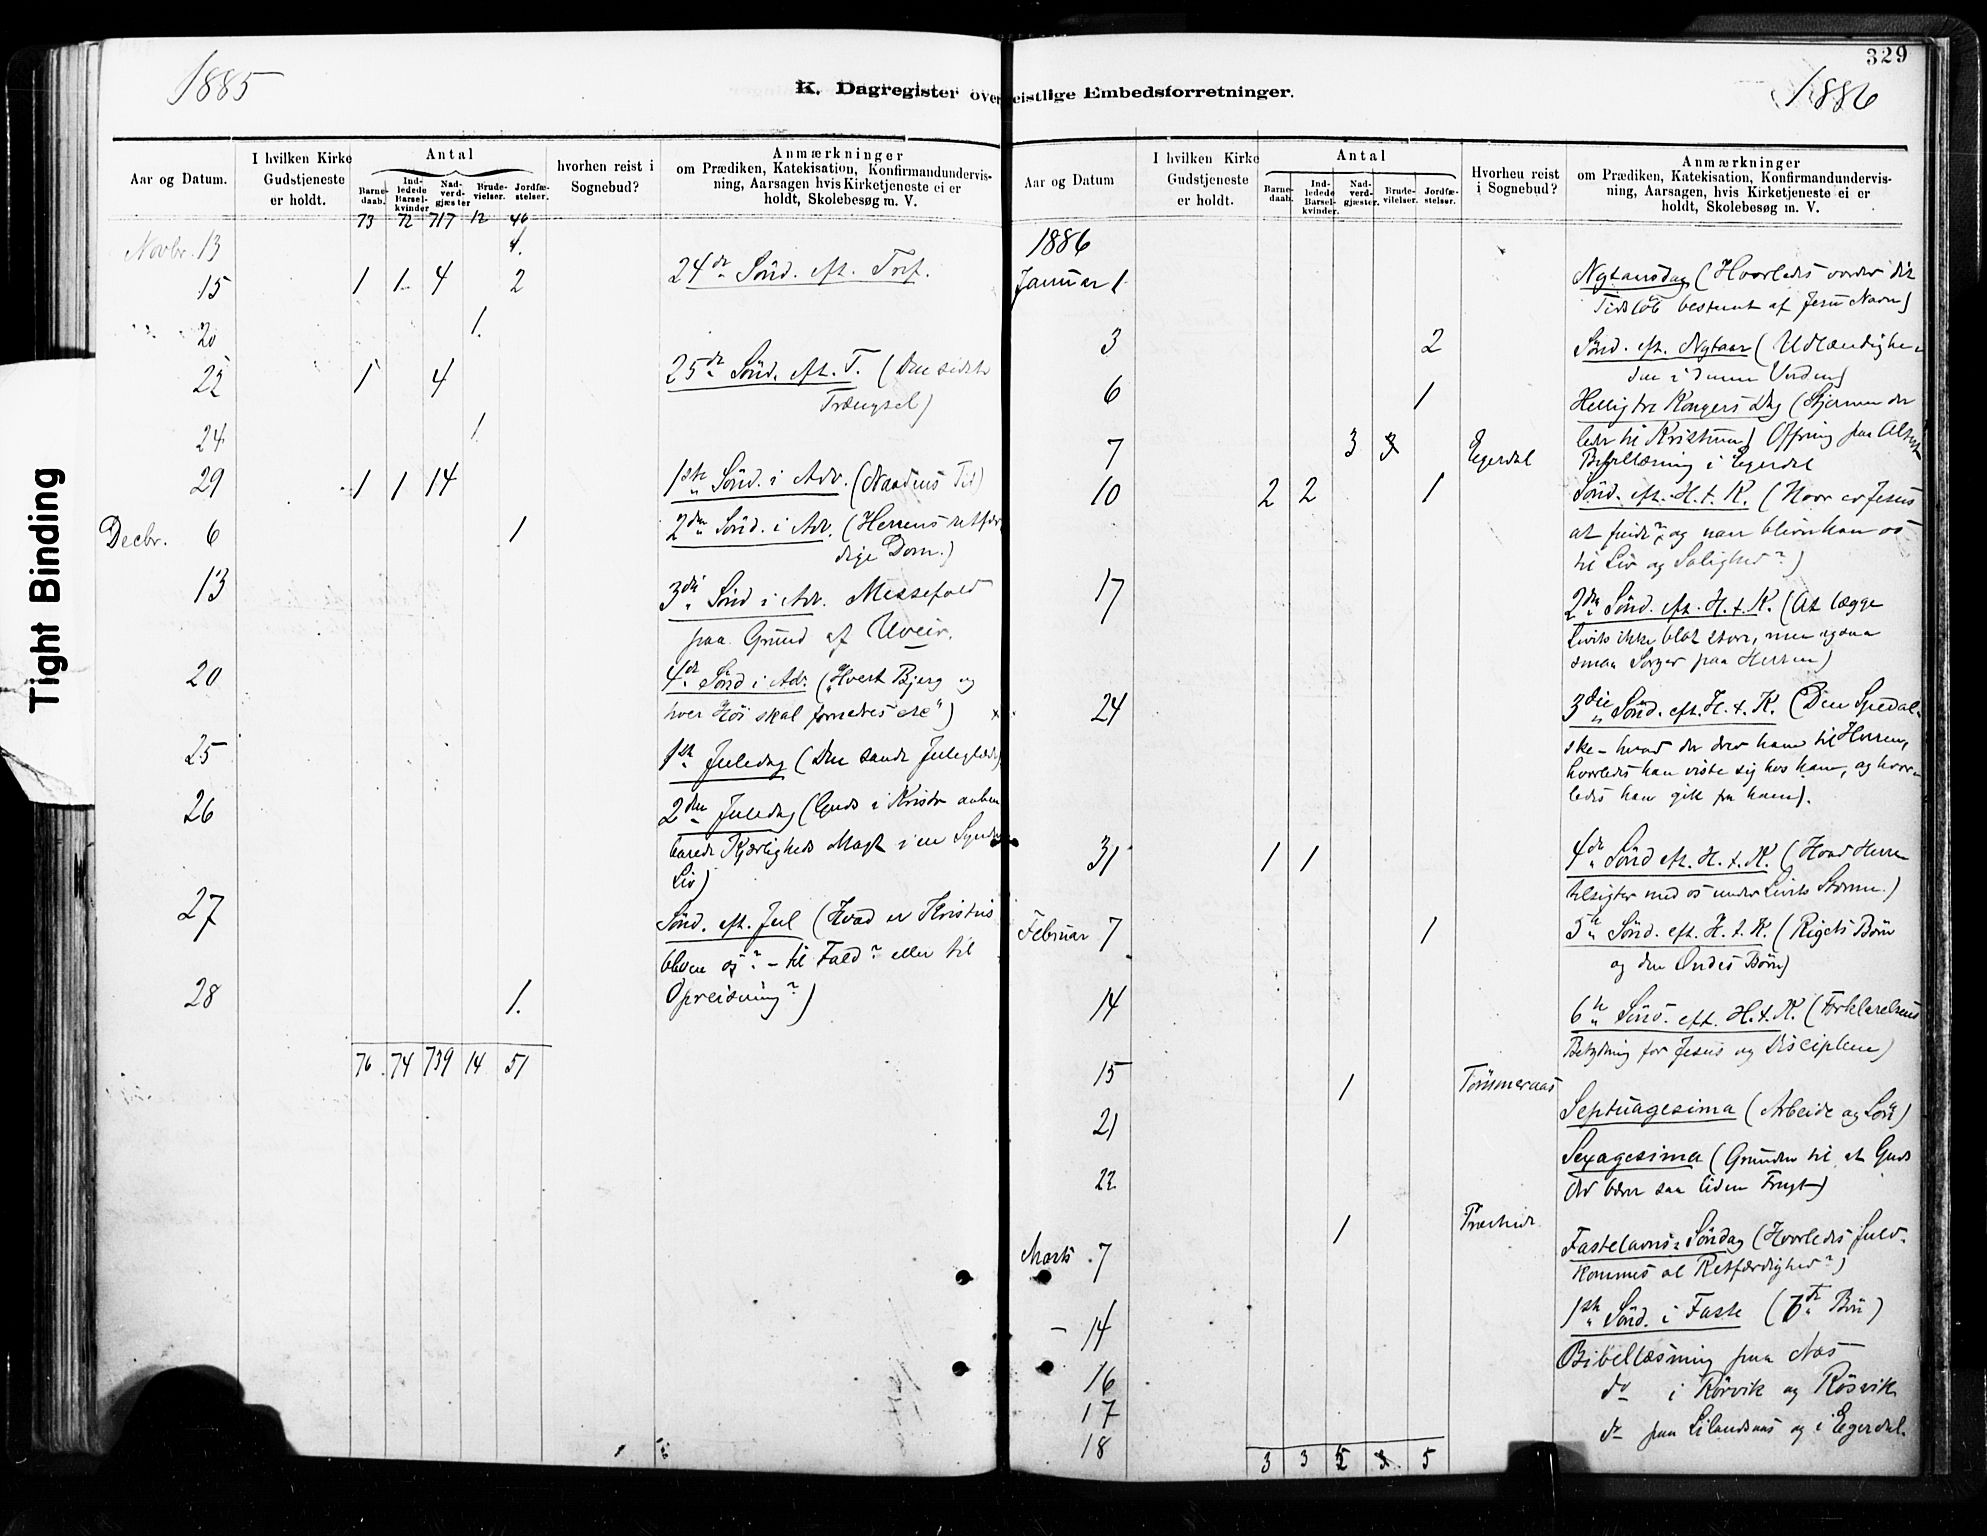 Tight Binding
1885
K. Dagregister over
Aar og Datum.
I hvilken Kirke
Gudstjeneste
er holdt.
Antal
Barne-
daab.
Ind-
ledede
Barsel-
kvinder
Nad-
verd-
gjæster
Brude-
vielser.
Jordfæ-
stelser.
hvorhen reist i
Sognebud?
Anmærkninger
om Prædiken, Katekisation, Konfirmandundervis-
ning, Aarsagen hvis Kirketjeneste ei er
holdt, Skolebesøg m. V.
73 72 717 12 46
Novbr. 13 1.
15 1 1 4 2 24de Sönd. eft. Tref.
20 1.
22 1 4 25de Sönd. eft. T. (Den sidste
Trængsel)
24 1
29 1 1 14 1ste Sönd. i Adv. (Naadens Tid)
Decbr. 6 1 2den Sönd. i Adv. (Herrens retfær
dige Dom.)
13 3die Sönd i Adv. Messefald
paa Grund af Uveir.
20 4de Sönd i Adv. ("Hvert Bjerg og
hver Höi skal fornedres etc")
25 1ste Juledag (Den sande Juleglæde)
26 2den Juledag (Guds i Kristo aaben
barede Kjærligheds Magt i en Synders
Liv)
27 Sönd. eft. Jul (Hvad er Kristus
bleven os? - til Fald? eller til
28 1. Opreisning?)
76 74 739 14 51
329
eistlige Embedsforretninger.
1886
Aar og Datum
I hvilken Kirke
Gudstjeneste
er holdt.
Antal
Barne-
daab.
Ind-
ledede
Barsel-
kvinder.
Nad-
verd-
gjæster.
Brude-
vielser.
Jordfæ-
stelser.
Hvorhen reist
i Sognebud?
Anmærkninger
om Prædiken, Katekisation, Konfirmandundervis-
ning, Aarsagen, hvis Kirketjeneste ei er
holdt, Skolebesøg m. V.
1886
Januar 1. Nytaarsdag (Hvorledes vorder dit
Tidslöb bestemt af Jesu Navn)
3 2 Sönd. eft. Nytaar (Udlændighe-
den i denne Verden)
6 1 Hellig tre Kongers Dag (Stjernen der
leder til Kristum) Offring paa Alteret
7 3 3 Egerdal Bibellæsning i Egerdal
10 2 2 1 Sönd. eft. H. t. K. (Hvor er Jesus
at finde?, og naar bliver han os
til Liv og Salighed?)
17 2den Sönd. eft. H. t. K. (At lægge
Livets ikke blot store, men ogsaa
smaa Sorger paa Herren)
24 3die Sönd. eft. H. t. K. (Den Spedal-
ske - hvad der drev ham til Herren,
hvorledes han viste sig hos ham, og hvor-
ledes han gik fra ham).
31 1 1 4de Sönd eft. H. t. K. (Hvad Herren
tilsigter med os under Livets Storme.)
Februar 7 1 5te Sönd. eft. H. t. K. (Rigets Börn
og den Ondes Börn)
14 6te Sönd. eft. H. t. K. (Forklarelsens
Betydning for Jesus og Disciplene)
15 1 Tömmernæs
21 Septuagesima (Arbeide og Lön)
22 Sexagesima (Grunden til at Guds
Ord bærer saa liden Frugt)
1
Marts 7 Fastelavns-Söndag (Hvorledes fuld-
kommes al Retfærdighed?)
- 14 1ste Sönd. i Faste (6te Bön)
16 Bibellæsning paa Næs
17 do i Rörvik og Rösvik
18 do paa Lilandsnæs og i Egerdal.
3 3 5 3 5